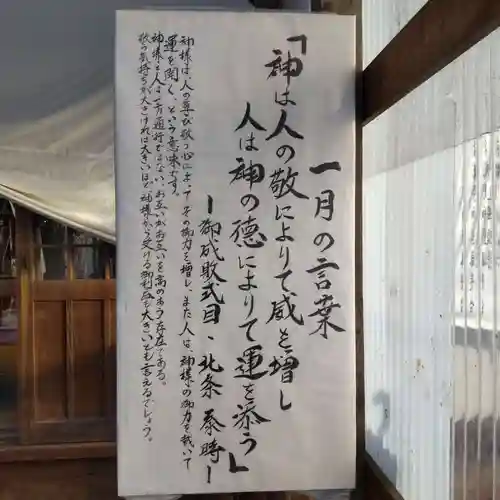 一月の言葉
「神は人の敬によりて威を増し
人は神の徳によりて運を添う」
ー御成敗式目・北条泰時ー
神様は、人の尊び敬う心によってその御力を増し、また人は、神様の御力を戴いて
運を開く、という意味です。
神様と人は一方通行ではない、お互いがお互いを高めあう存在である。
敬の気持ちが大きければ大きいほど、神様から受ける御利益も大きいとも言えるでしょう。